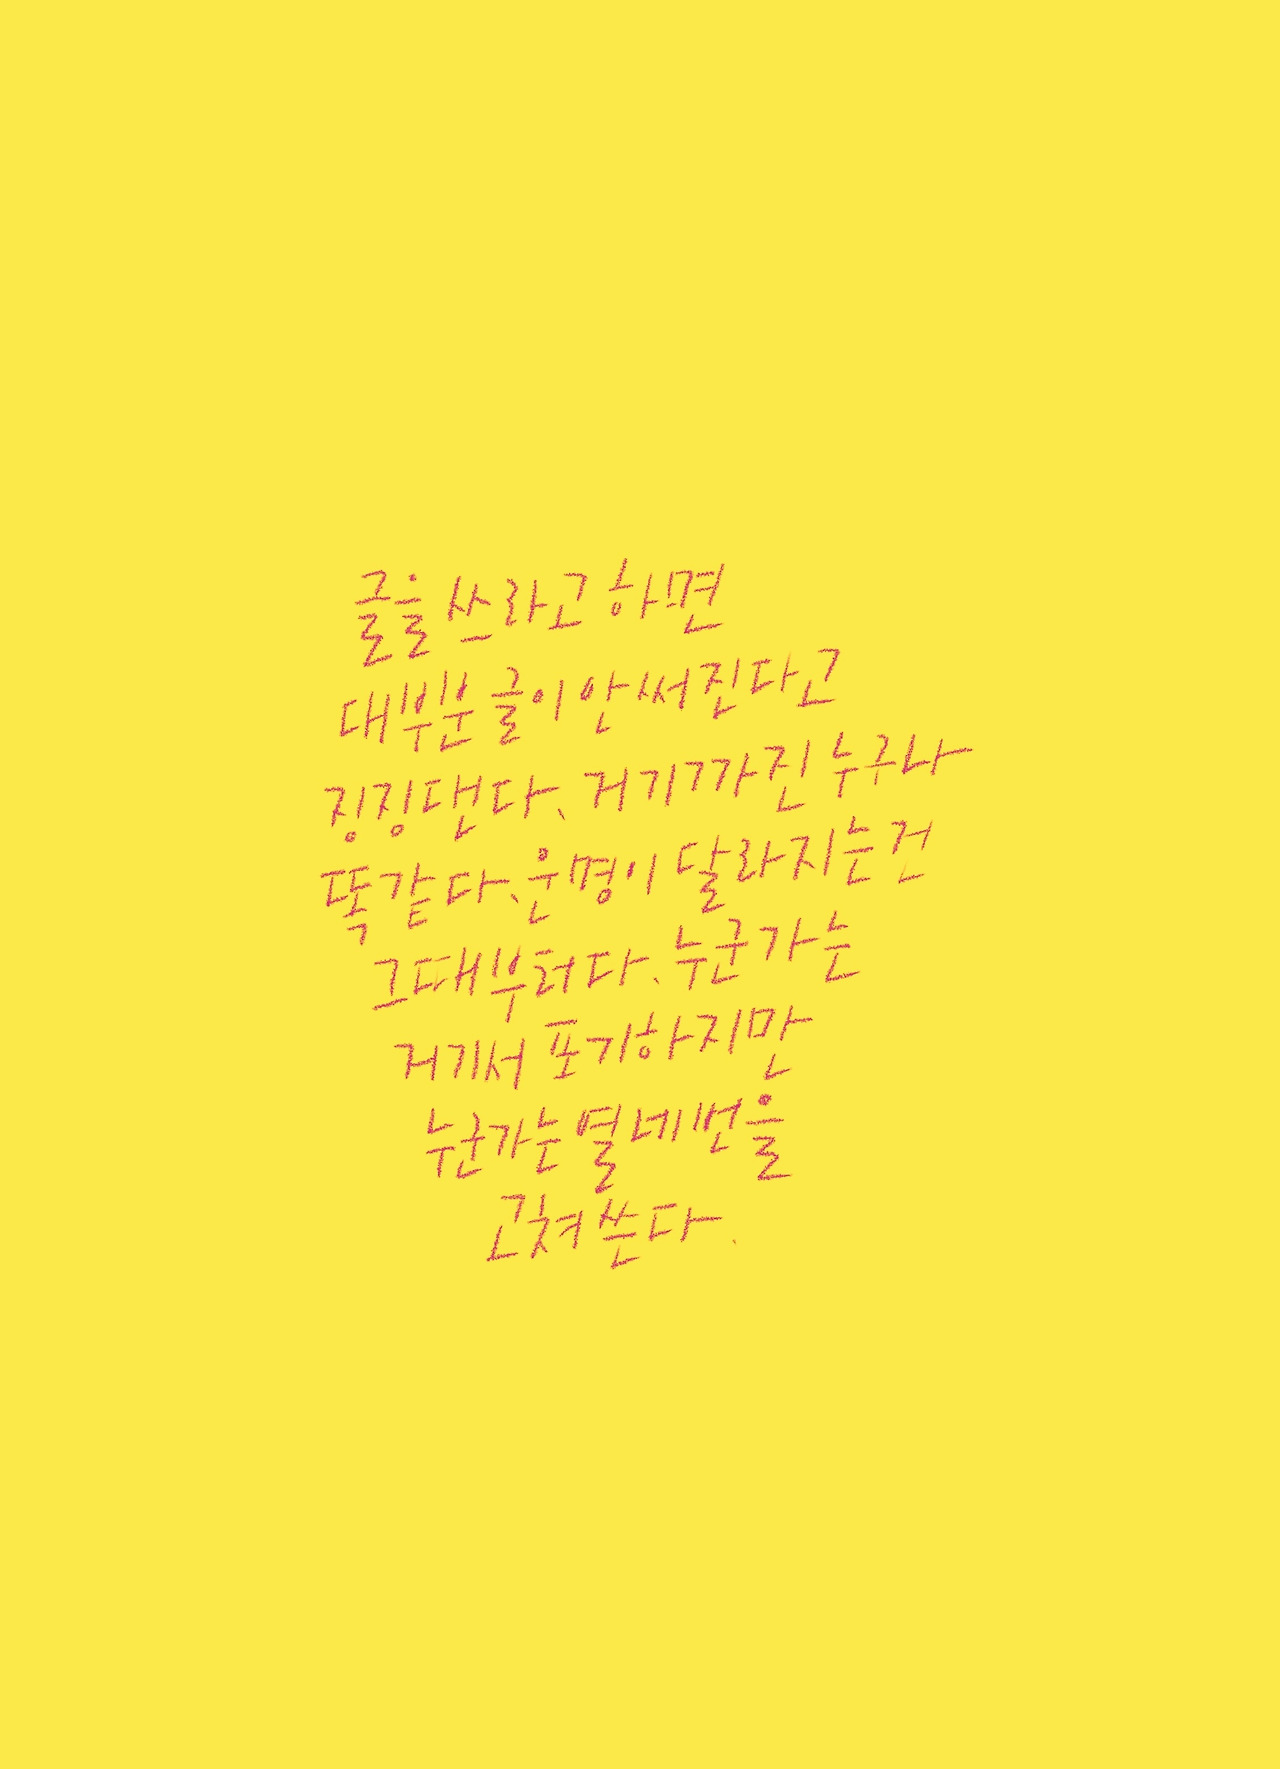 글을 쓰라고 하면
대부분 글이 안 써진다고
징징댄다. 거기까진 누구나
똑같다. 운명이 달라지는 건
그때부터다. 누군가는
거기서 포기하지만
누군가는 열네번을
고쳐 쓴다.